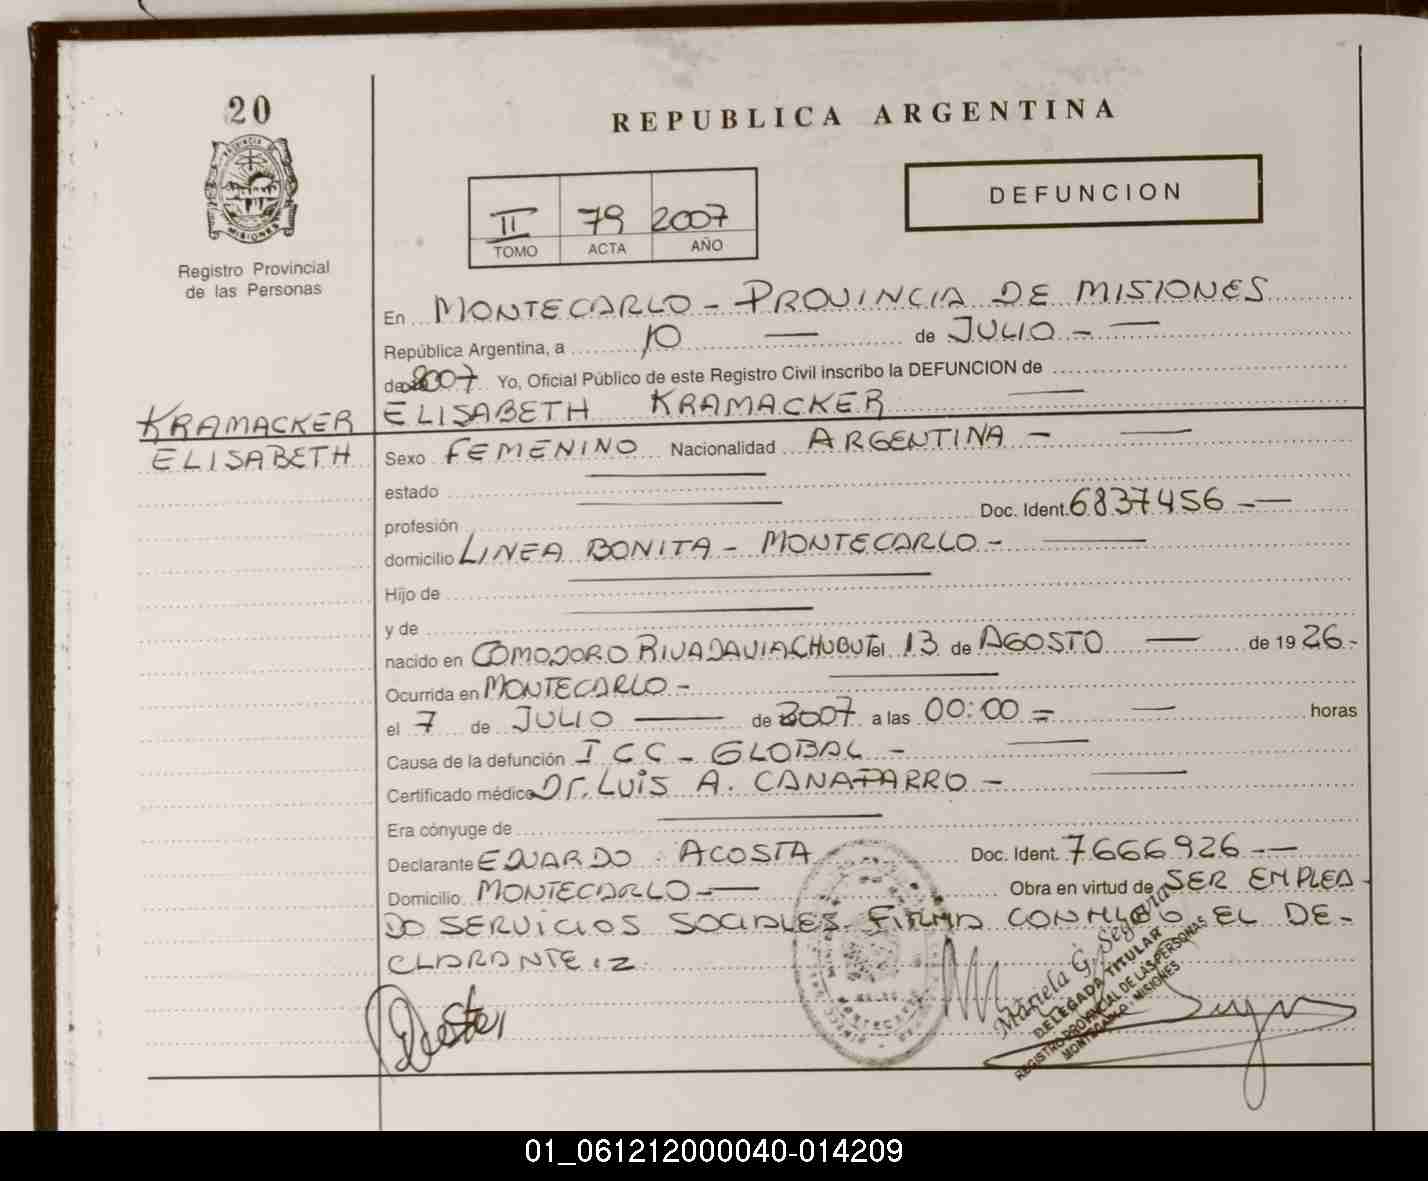 20
REPUBLICA ARGENTINA
DEFUNCION
II 79 2007
TOMO ACTA AÑO
Registro Provincial
de las Personas
En MONTECARLO - PROVINCIA DE MISIONES
República Argentina, a 10 — de JULIO - —
de 2007 Yo, Oficial Público de este Registro Civil inscribo la DEFUNCION de
KRAMACKER ELISABETH KRAMACKER
ELISABETH Sexo FEMENINO Nacionalidad ARGENTINA - —
estado
profesión Doc. Ident. 6837456 - —
domicilio LINEA BONITA - MONTECARLO - —
Hijo de
y de
nacido en COMODORO RIVADAVIA CHUBUT el 13 de AGOSTO — de 19 26 -
Ocurrida en MONTECARLO -
el 7 de JULIO — de 2007 a las 00:00 = — horas
Causa de la defunción I C C - GLOBAL -
Certificado médico Dr. LUIS A. CANAPARRO -
Era cónyuge de
Declarante EDUARDO ACOSTA Doc. Ident. 7666926 - —
Domicilio MONTECARLO - — Obra en virtud de SER EMPLEA
DO SERVICIOS SOCIALES. FIRMA CONMIGO EL DE-
CLARANTE
Mariela G. Segovia
DELEGADA TITULAR
REGISTRO PROVINCIAL DE LAS PERSONAS
MONTECARLO - MISIONES
01_061212000040-014209